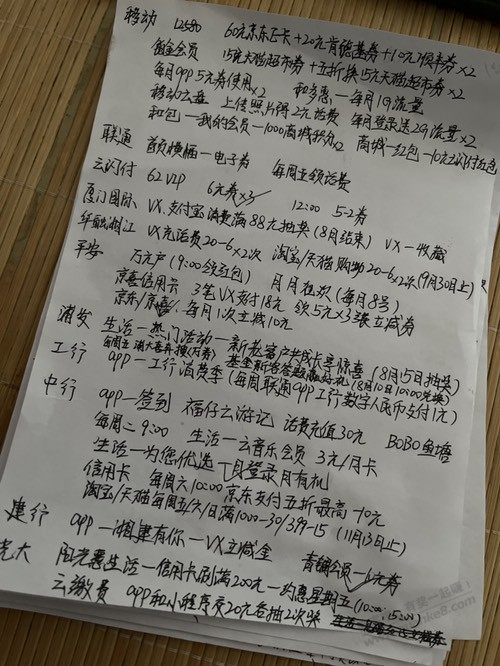 移动 12580 60元京东E卡+20元肯德基券+10元7顿半券×2
铂金会员 15元天猫超市券+五折换15元天猫超市券×2
每月app5元券使用×2 和多惠一每月1G流量
移动云盘 上传照片得2元话费 每月登录送2G流量×2
和包一我的会员一1000商城积分×2 商城一红包一10元云闪付红包
联通 首页横幅一电子券 每周五领话费
云闪付 62VIP 6元券×3 12:00 5-2券
厦门国际 VX.支付宝消费满88元抽奖(8月结束) VX一收藏
华融湘江 VX充话费20-6×2次 淘宝/天猫购物20-6×2次(9月30日止)
平安 万元户(9:00领红包) 月月狂欢(每月8号)
京喜信用卡 3笔VX支付18元 领5元×3张立减券
京东/京喜.每月1次立减10元
浦发 生活一热门活动一新老客户共成长享惊喜(8月15日抽奖)
每周五
工行 app一工行消费季(每周联通app工行数字人民币支付1元)
中行 app一签到 福仔云游记 话费充值30元 BOBO鱼塘
每周二9:00 生活一云音乐会员 3元/月卡
生活一为您优选 月登录月有机
信用卡 每周六10:00京东支付五折最高一10元
淘宝/天猫每周五/六/日满1000-30/399-15(11月13日止)
建行 app一湘建有你一VX立减金
光大 阳光惠生活一信用卡刷满200元一约惠星期五(10:00,15:00)
云缴费 app和小程序交20元各抽2次奖